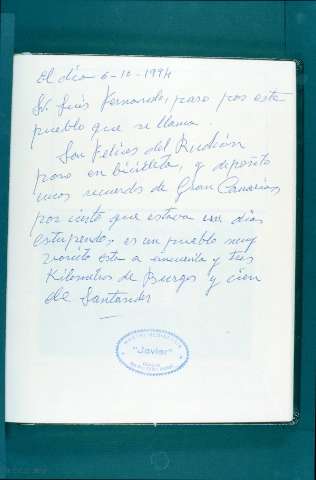 El día 6-10-1994
Sr. Luis Fernando, paso por este
pueblo que se llama.
San Felices del Rudrón
paso en bicicleta, y deposito
unos recuerdos de Gran Canarias
por cierto que estava un dia
estupendo, es un pueblo muy
bonito esta a cincuenta y tres
Kilometros de Burgos y cien
de Santander
"Javier"